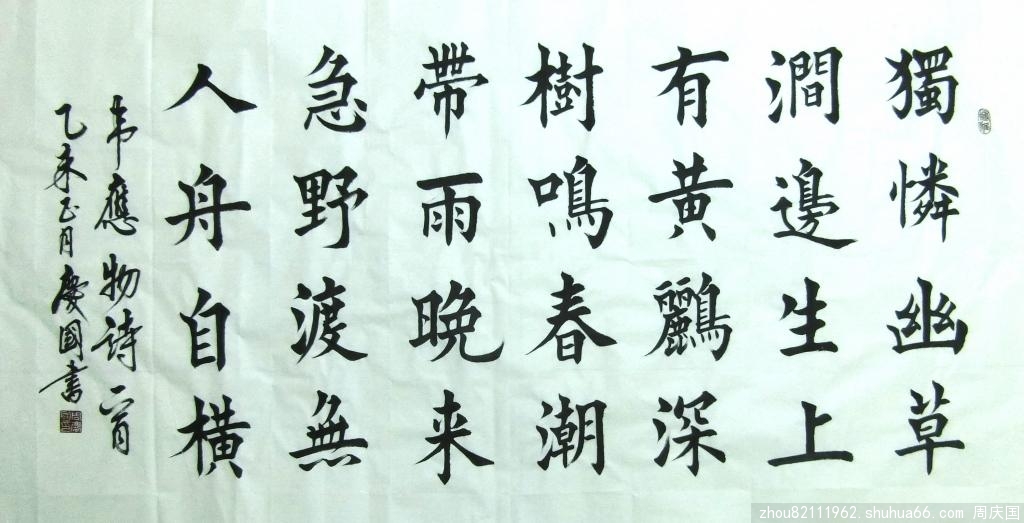 獨憐幽草
澗邊生上
有黃鸝深
樹鳴春潮
帶雨晚来
急野渡無
人舟自横
韦應物詩一首
乙未正月慶國書
zhou82111962.shuhua66.com 周庆国